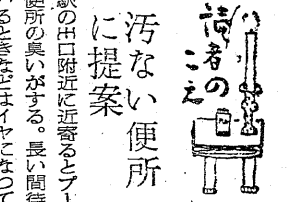 読者のこえ
汚ない便所
に提案
駅の出口附近に近寄るとプー
便所の臭いがする。長い間待
るときなどはイヤになって